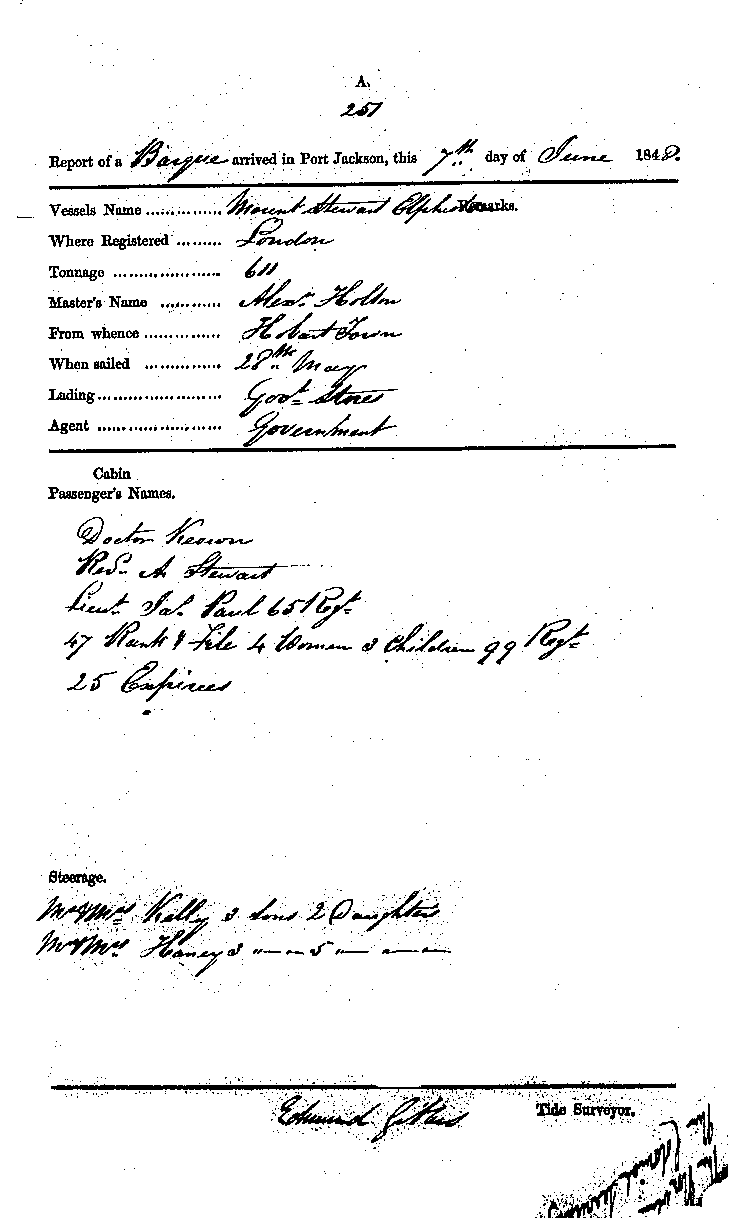 A.
251
Report of a Barque arrived in Port Jackson, this 7th day of June 1848.
Vessels Name .............. Mount Stewart Elphinstone Remarks.
Where Registered ......... London
Tonnage ..................... 611
Master's Name ............ Alexr Holton
From whence ............... Hobart Town
When sailed ............... 28th May
Lading........................ Govt Stores
Agent ........................ Government
Cabin
Passenger's Names.
Doctor Keown
Revd A Stewart
Lieut Jas Paul 65 Regt
47 Rank & File 4 Women 3 Children 99 Regt
25 Expirees
Steerage.
Mr & Mrs Kelly 3 Sons 2 Daughters
Mr & Mrs Haney 3 " " 5 " "
Edmund
Tide Surveyor.